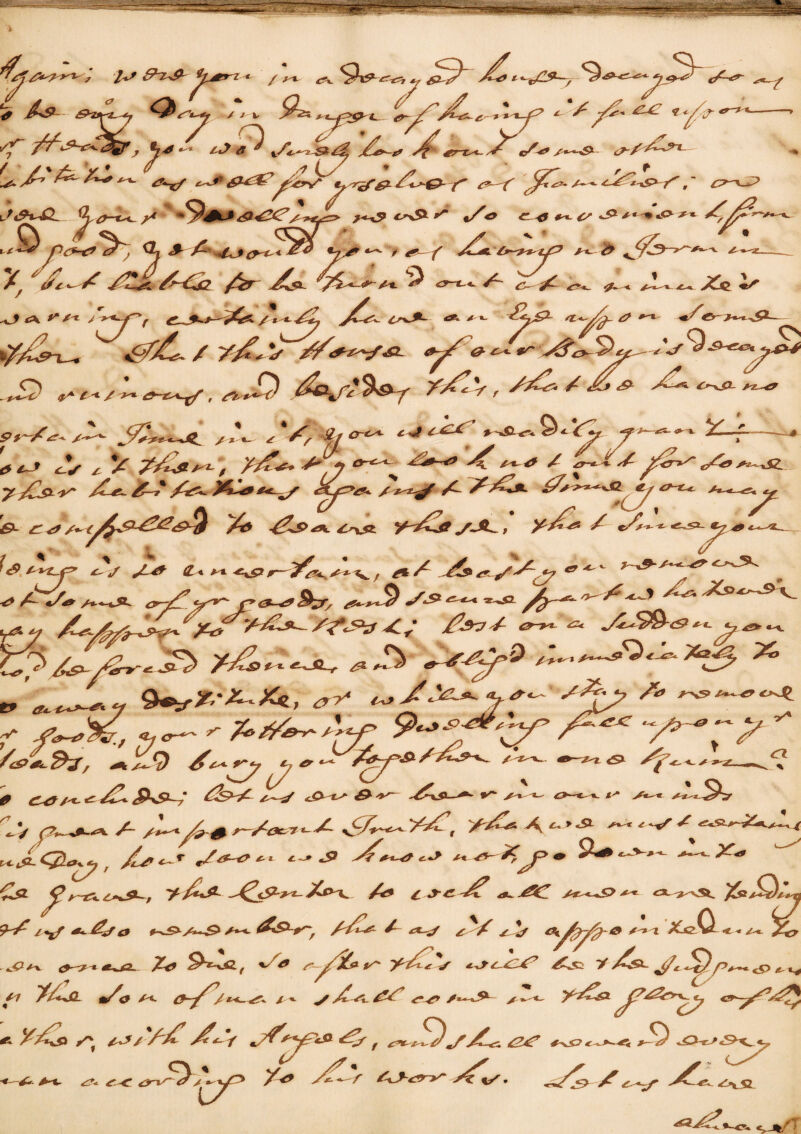 Again; were you in a decayed house, decayed so as
o be evry Day in danger of having it fall upon
yr Heads, you wod surely look out some other
abitation as well for yrselves as Families; or
were your Dwelling never so convenient, firm
and good, yet would you, as having no Term in
t, but liable to be turn'd out at a minute's
warning, certainly have an Eye upon some
ther. That this House of our Body is decayed
nd ruinous, and besides this, that we have no
ertain Time in it, you will readily grant:
ow is it then, that you look not out for some
ther habitations against the Time you may
e compelled to leave these; that since your
Being is so uncertain, at least you remove
ot some of yr goods, and secure part whatever
ay happen to the Rest; lest on a sudden you
ho'd be forced thence, and oblig'd immediately to
o away destitute, or while you stay to remove
r goods, your tottering Dwelling fall upon yr
Heads, and bury you together in one Ruin?
o conclude; let us ever bear in our minds
is great important Truth, that we must certainly
ne Day, how soon we know not, go down into
he grave, the Center to wch all men are tending
et us also remember, that as it is appointed unto
en once to die, so after this will be the Judgment
n the Son of man shall come in the glory of his
ather, with his Angels, and shall reward every
an according to his works. Let us have
always